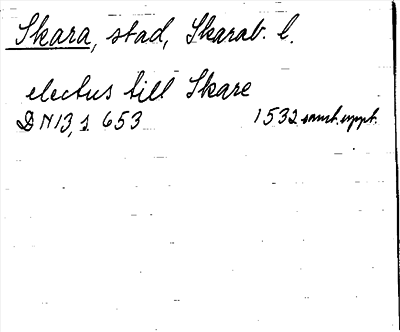 Skara, stad, Skarab. l.
electus till Skare
DN 13, s 653 1532 samt. uppt.